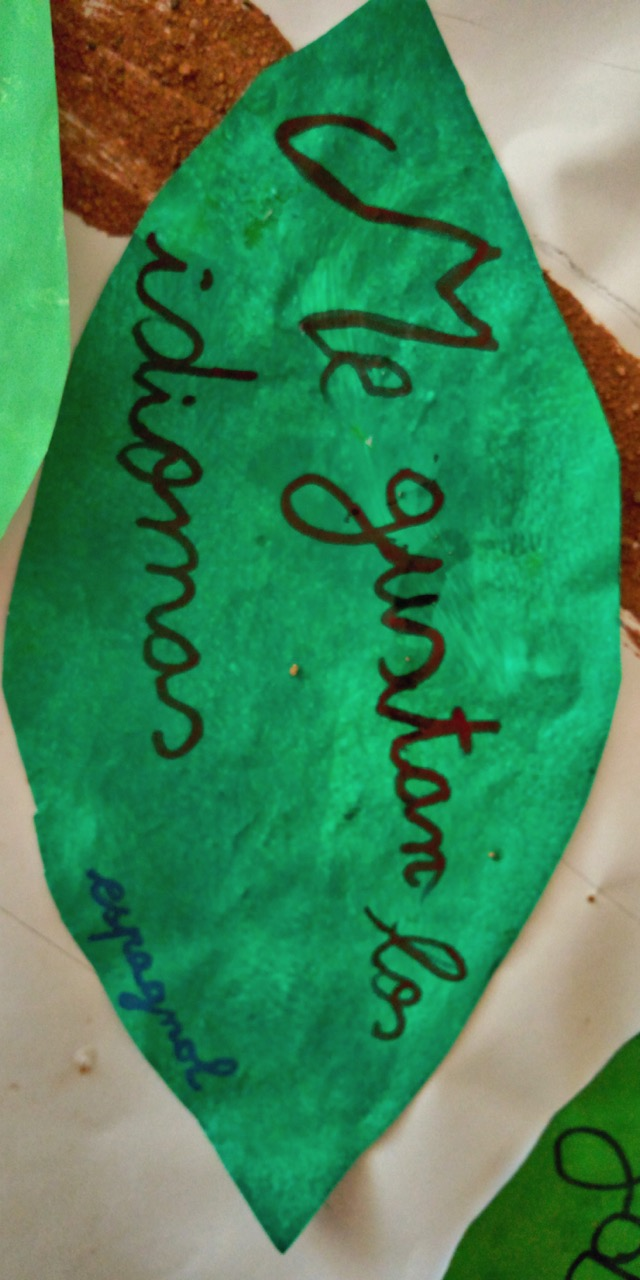 Me gustan los
idiomas
espagnol